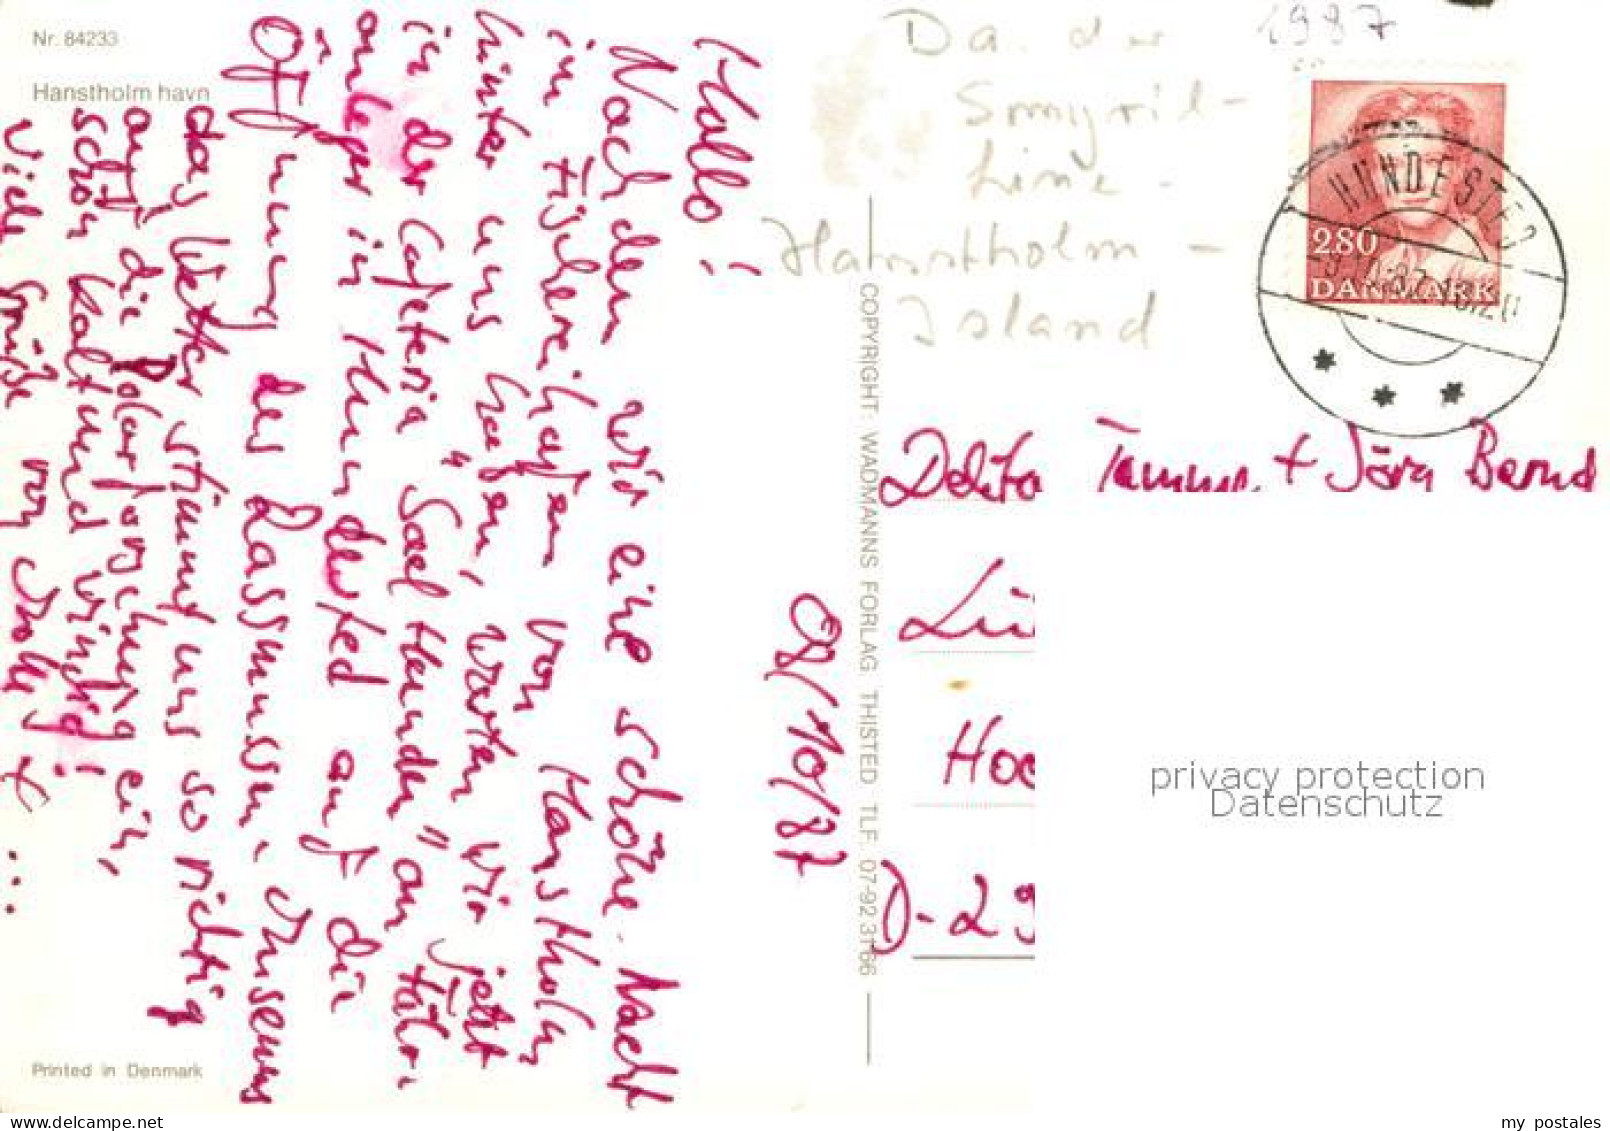 Nr. 84233
Hanstholm havn
Hallo!
Nachdem wir eine schöne Nacht
im Fischereihafen von Hanstholm
hinter uns haben, warten wir jetzt
in der Cafeteria "Sael Hunden" am Fähr-
anleger in Hundested auf die
Öffnung des Rassmussen-Museums
das Wetter stimmt uns so richtig
auf die Polarforschung ein,
schön kalt und windig!
Viele Grüße von
09/10/87
Printed in Denmark
COPYRIGHT: WADMANNS FORLAG. THISTED TLF. 07-92 31 66
1987
Da. der
Smyril-
Line -
Hanstholm -
Island
HUNDESTED
280
DANMARK
+ Jörn Bernd
Hoe
D-29
privacy protection
Datenschutz
my postales